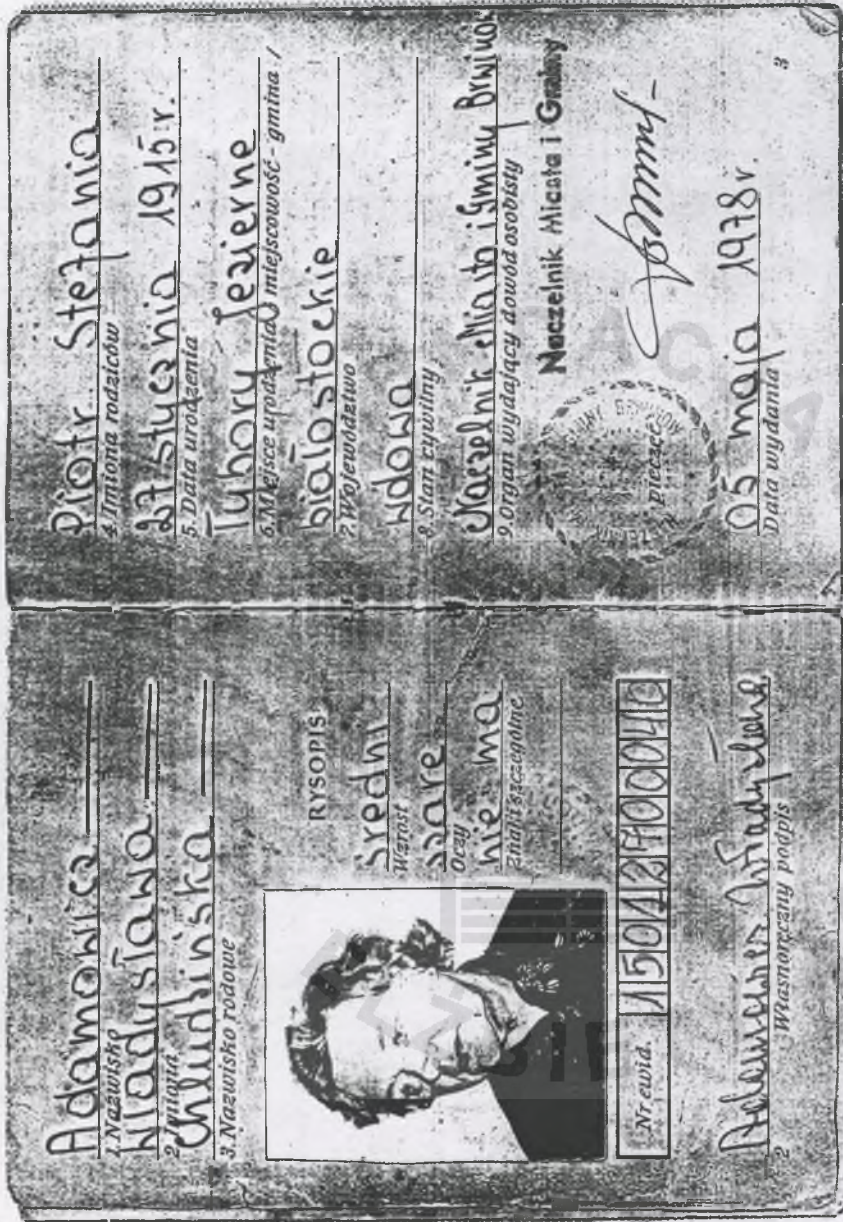 Adamowicz
1. Nazwisko
Władysława
2. Imiona
Chludzińska
3. Nazwisko rodowe
RYSOPIS
średni
Wzrost
szare
Oczy
nie ma
Znaki szczególne
Nr ewid. 15012700040
Adamowicz Władysława
2 Własnoręczny podpis
Piotr Stefania
4. Imiona rodziców
27 stycznia 1915 r.
5. Data urodzenia
Tybory Jezierne
6. Miejsce urodzenia / miejscowość - gmina /
białostockie
7. Województwo
wdowa
8. Stan cywilny
Naczelnik Miasta i Gminy Brwinów
9. Organ wydający dowód osobisty
Naczelnik Miasta i Gminy
pieczęć
05 maja 1978 r.
Data wydania
3